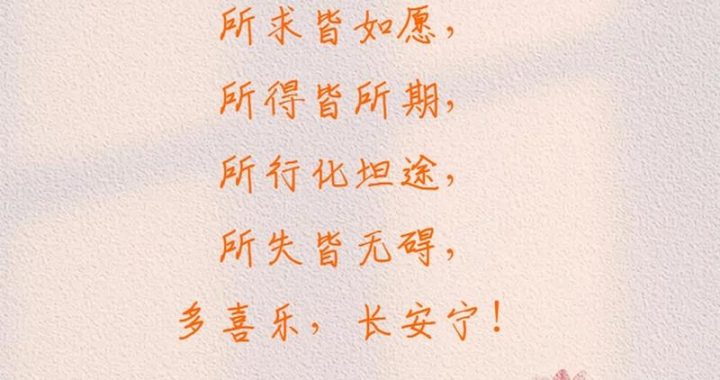 所求皆如愿，
所得皆所期，
所行化坦途，
所失皆无碍，
多喜乐，长安宁！